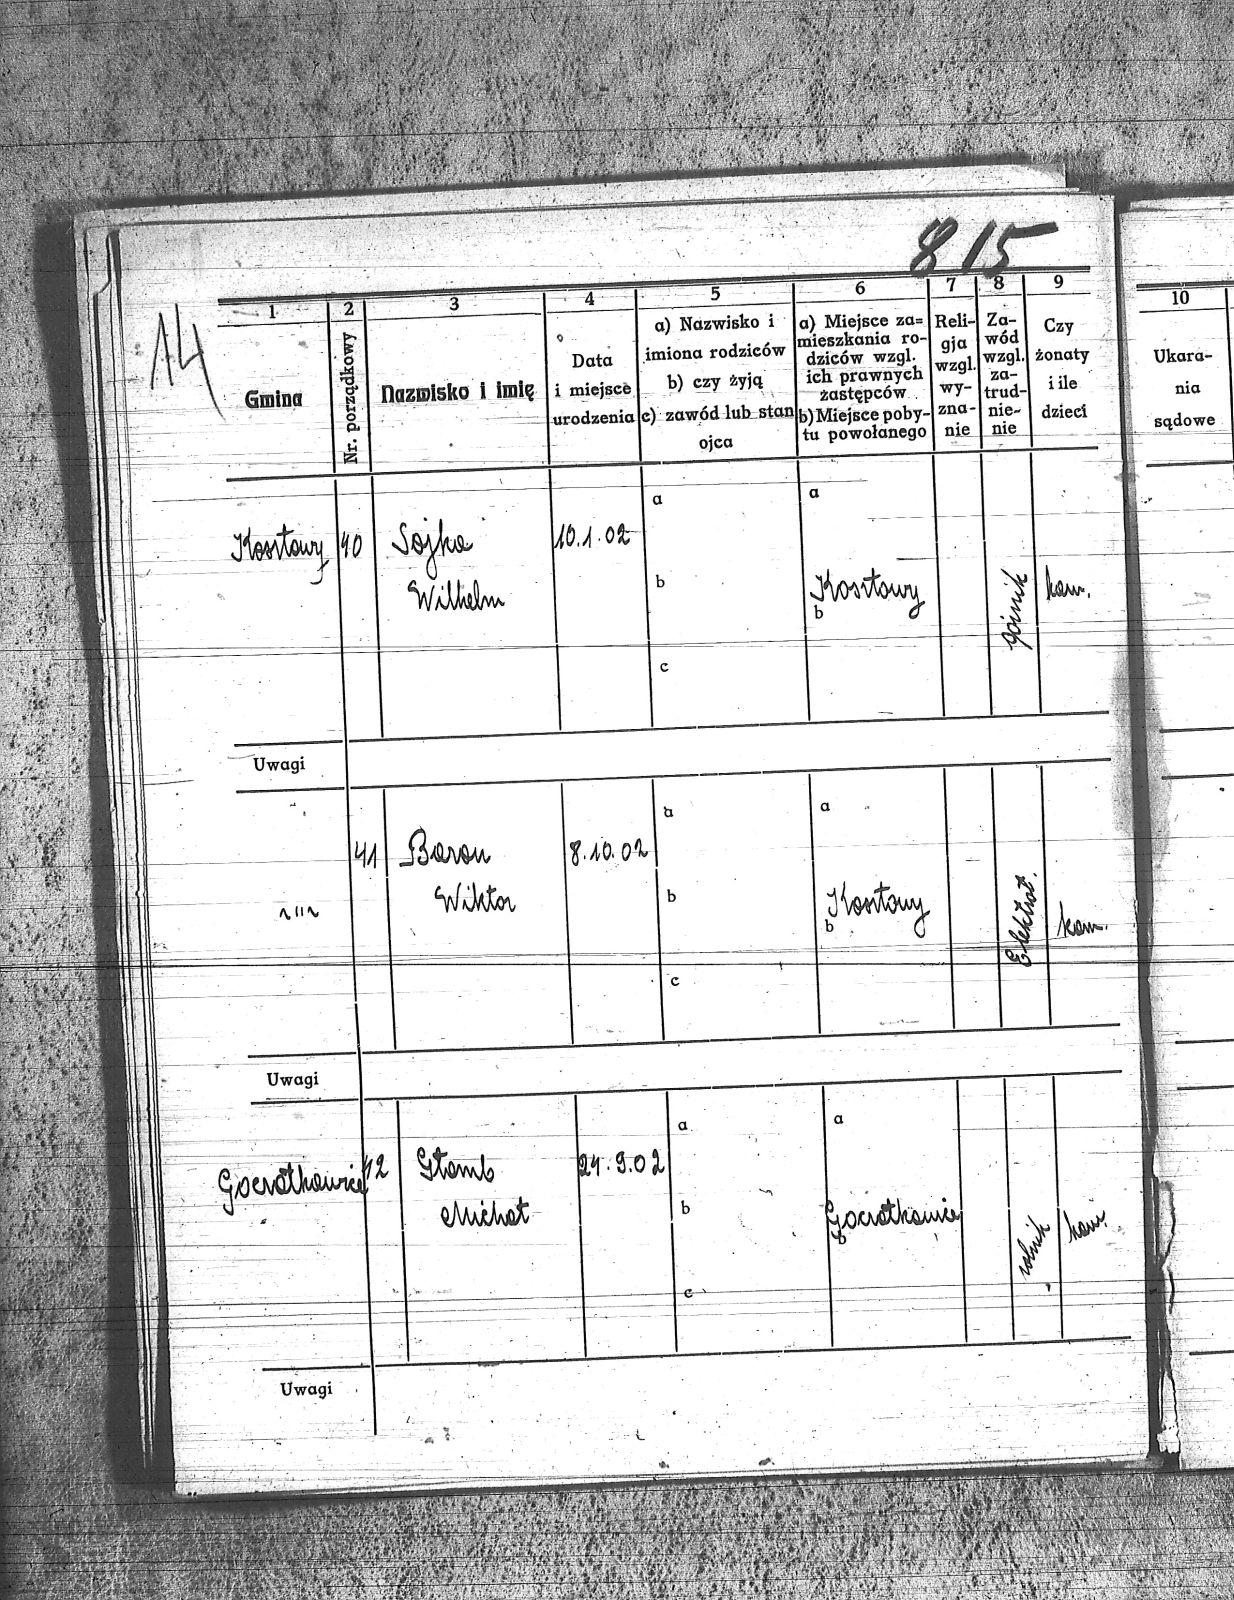 815
14
1 2 3 4 5 6 7 8 9 10
Gmina
Nr. porządkowy
Nazwisko i imię
Data
i miejsce
urodzenia
a) Nazwisko i
imiona rodziców
b) czy żyją
c) zawód lub stan
ojca
a) Miejsce za=
mieszkania ro-
dziców wzgl.
ich prawnych
zastępców
b) Miejsce poby-
tu powołanego
Reli-
gja
wzgl.
wy-
zna-
nie
Za-
wód
wzgl.
za-
trud-
nie-
nie
Czy
żonaty
i ile
dzieci
Ukara-
nia
sądowe
a a
Kosztowy 40 Sojka 10.1.02
Wilhelm
b Kosztowy górnik kaw.
b
c
Uwagi
a a
41 Baron 8.10.02
Wiktor
〃 b Kosztowy Elektrot. kaw.
b
c
Uwagi
a a
42 Głomb 24.9.02
Michał
b
b
rolnik kaw.
c
Uwagi